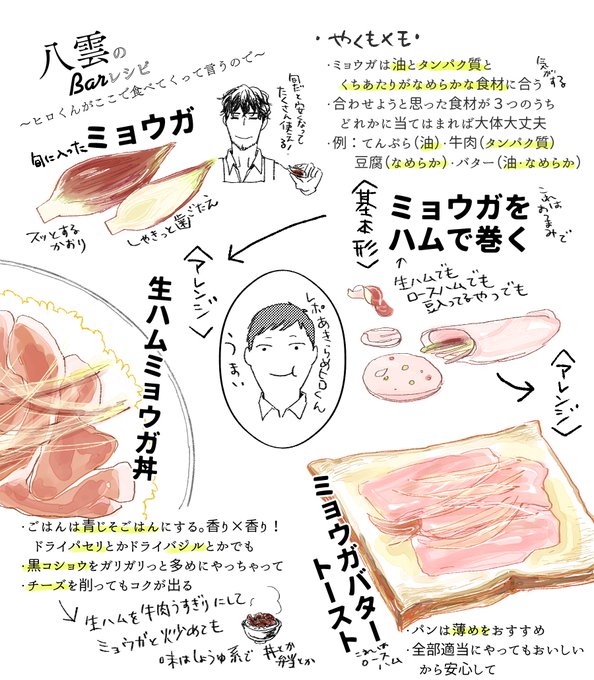 八雲の
Barレシピ
〜ヒロくんがここで食べてくって言うので〜
旬だと安くなって
たくさん使える!
旬に入った
ミョウガ
スッとする
かおり
しゃきっと歯ごたえ
・やくもメモ・
・ミョウガは油とタンパク質と
くちあたりがなめらかな食材に合う
気がする
・合わせようと思った食材が3つのうち
どれかに当てはまれば大体大丈夫
・例：てんぷら(油)・牛肉(タンパク質)
豆腐(なめらか)・バター(油・なめらか)
〈基本形〉
ミョウガを
ハムで巻く
これは
おつまみで
生ハムでも
ロースハムでも
豆入ってるやつでも
〈アレンジ〉
生ハムミョウガ丼
レポあきらめヒロくん
うまい
・ごはんは青じそごはんにする。香り×香り！
ドライパセリとかドライバジルとかでも
・黒コショウをガリガリっと多めにやっちゃって
・チーズを削ってもコクが出る
生ハムを牛肉うすぎりにして
ミョウガと炒めても
味はしょうゆ系で
丼とか
弁当とか
〈アレンジ〉
ミョウガバター
トースト
これは
ロース
ハム
・パンは薄めをおすすめ
・全部適当にやってもおいしい
から安心して